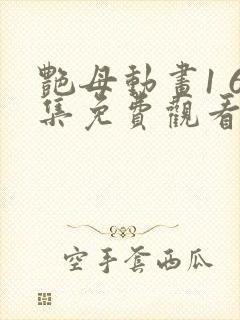 艷母動畫1 6
集免費觀看
空手套西瓜